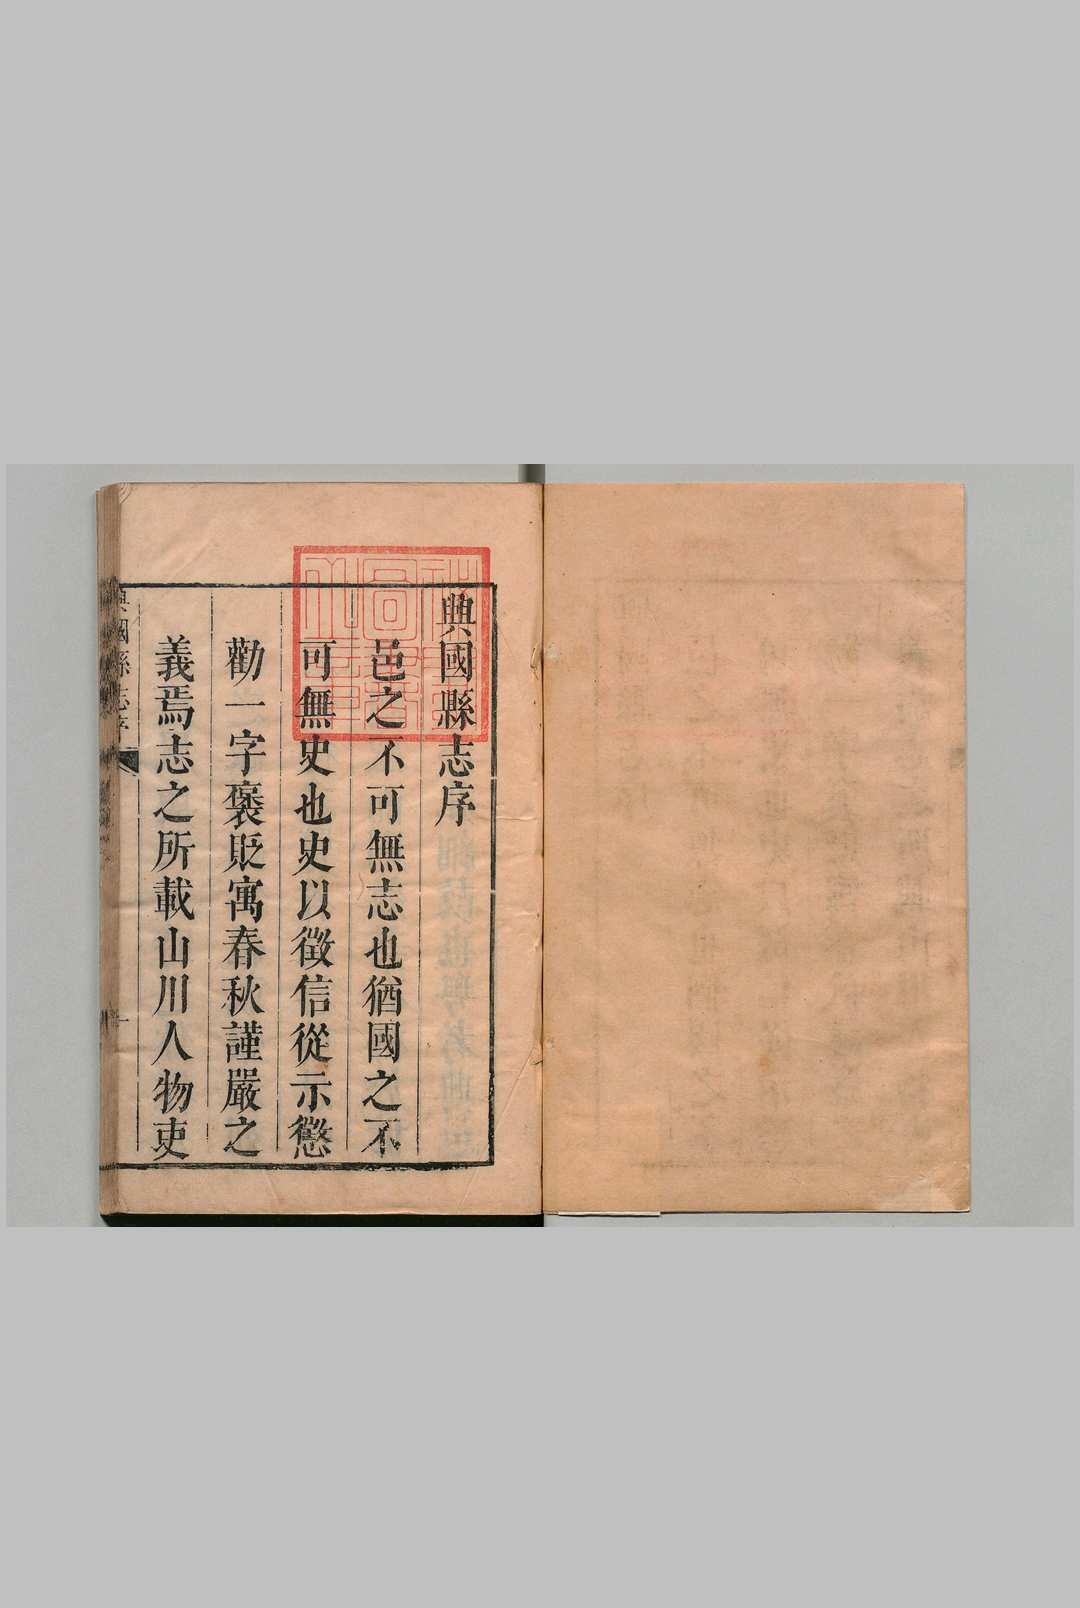 興國縣志序
邑之不可無志也猶國之不
可無史也史以徵信從示懲
勸一字褒貶寓春秋謹嚴之
義焉志之所載山川人物吏
興國縣志序
一